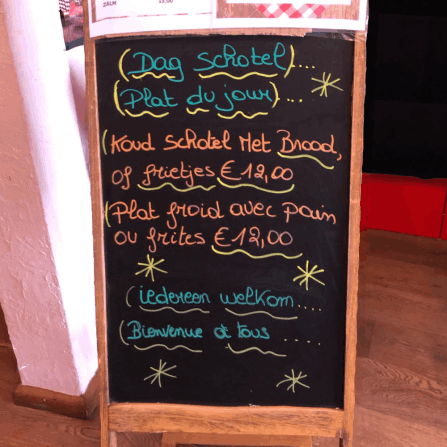 ZALM
(Dag schotel)....
(Plat du jour)...
(Koud schotel Met Brood,
of frietjes €12,00
(Plat froid avec pain
ou frites €12,00
(iedereen welkom....
(Bienvenue à tous .....